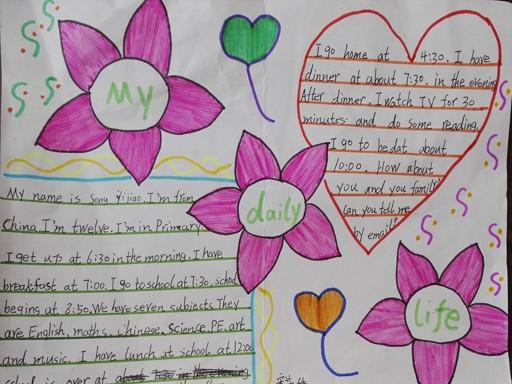 My
daily
life
My name is Song Yijiao. I'm from
China. I'm twelve. I'm in Primary
I get up at 6:30 in the morning. I have
breakfast at 7:00. I go to school at 7:30. school
begins at 8:50. We have seven subjects. They
are English, maths, Chinese, science, PE, art
and music. I have lunch at school at 12:00
is over at
I go home at 4:30. I have
dinner at about 7:30 in the evening
After dinner, I watch TV for 30
minutes and do some reading.
I go to bedat about
10:00. How about
you and you family?
can you tell me
by email?